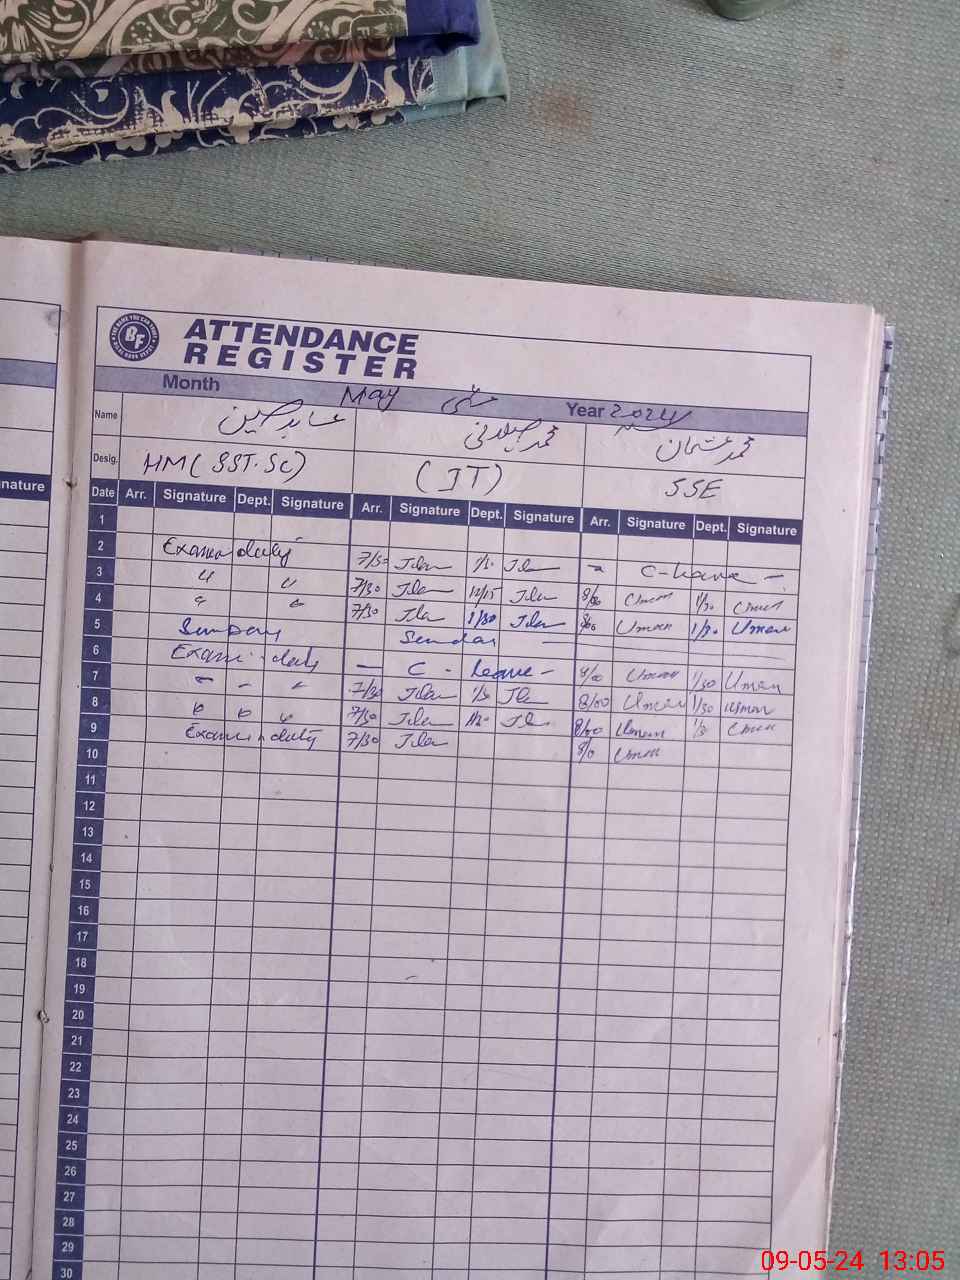 ATTENDANCE
REGISTER
BF
Month May مئی Year 2024
Name عابد حسین محمد جیلانی محمد عثمان
Desig. HM (SST.SC) (JT) SSE
nature
Date Arr. Signature Dept. Signature Arr. Signature Dept. Signature Arr. Signature Dept. Signature
1
2 Exam duty 7/30 1/30 C-Leave
3 " " 7/30 12/15 8/00 Umer 1/30 Umer
4 " " 7/30 1/30 8/00 Umer 1/30 Umer
5 Sunday Sunday
6 Exam duty C - Leave - 8/00 Umer 1/30 Umer
7 " " " 7/30 1/30 8/00 Umer 1/30 Umer
8 " " " 7/30 1/30 8/00 Umer 1/30 Umer
9 Exam duty 7/30 8/0 Umer
10
11
12
13
14
15
16
17
18
19
20
21
22
23
24
25
26
27
28
29
30
09-05-24 13:05